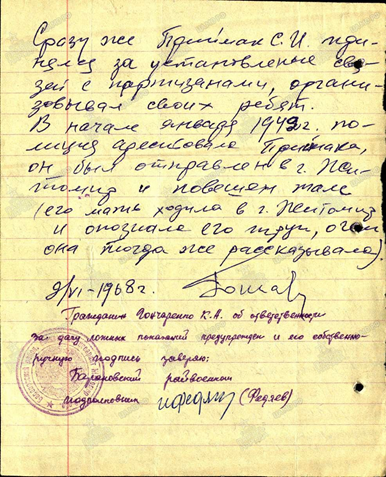 Сразу же Приймак С.И. при-
нялся за установление свя-
зей с партизанами, органи-
зовывал своих ребят.
В начале января 1943г. по-
лиция арестовала Приймака,
он был отправлен в г. Жи-
томир и повешен там
(его мать ходила в г. Житомир
и опознала его труп, о чем
она тогда же рассказывала).
2/VI-1968г.
Гражданин Гончаренко К.А. об ответственности
за дачу ложных показаний предупрежден и его собственно-
ручную подпись заверяю:
райвоенком
подполковник (Федяев)